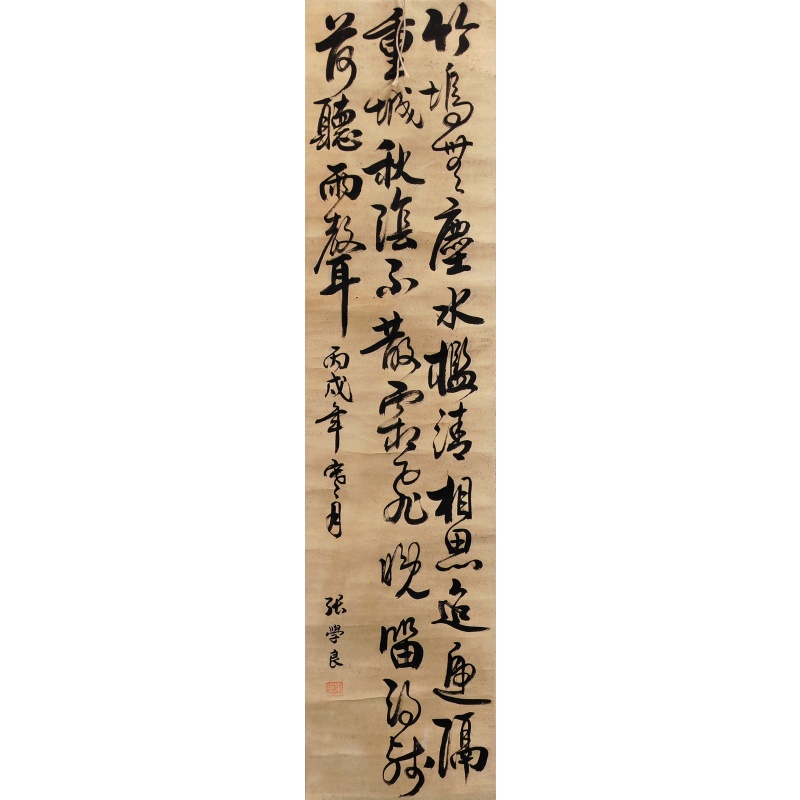 竹塢無塵水檻清相思迢遞隔
重城秋陰不散霜飛晚留得殘
荷聽雨聲 丙戌年寒月
張學良